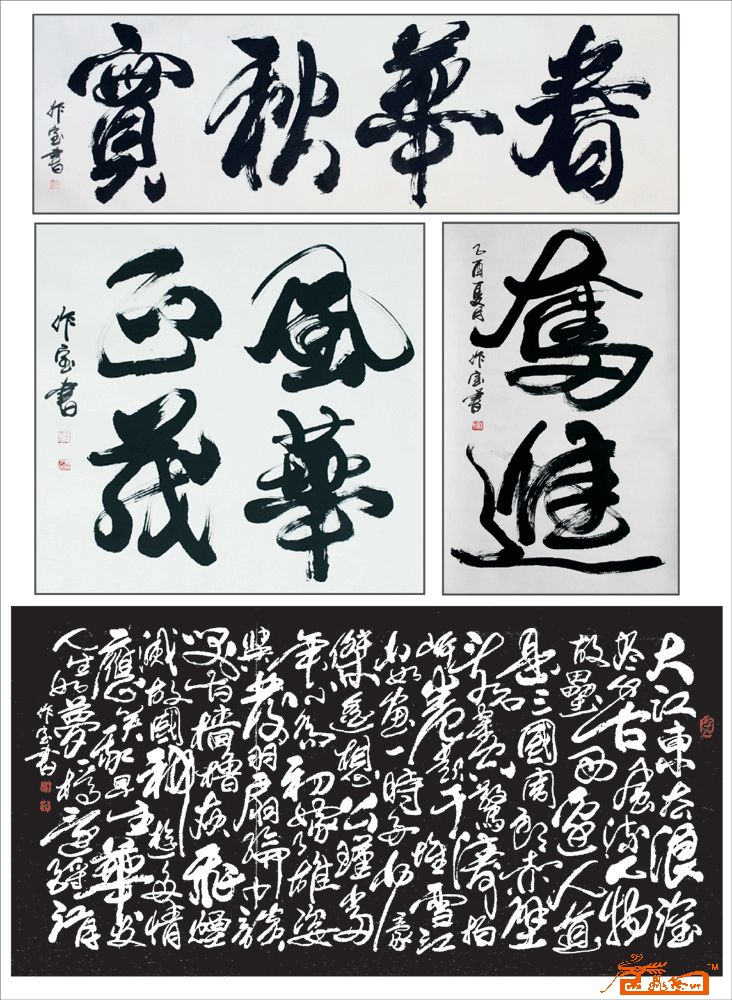 春華秋實
作宝書
風華正茂
作宝書
奮進
乙酉夏月 作宝書
大江東去浪淘
尽千古風流人物
故壘西邊人道
是三國周郎赤壁
驚濤拍
岸卷起千堆雪江
山如画一時多少豪
傑遥想公瑾當
年小喬初嫁了雄姿
英發羽扇綸巾談
笑间檣櫓灰飛煙
滅故國神遊多情
應笑我早生華发
人生如夢一樽還酹江月
作宝書